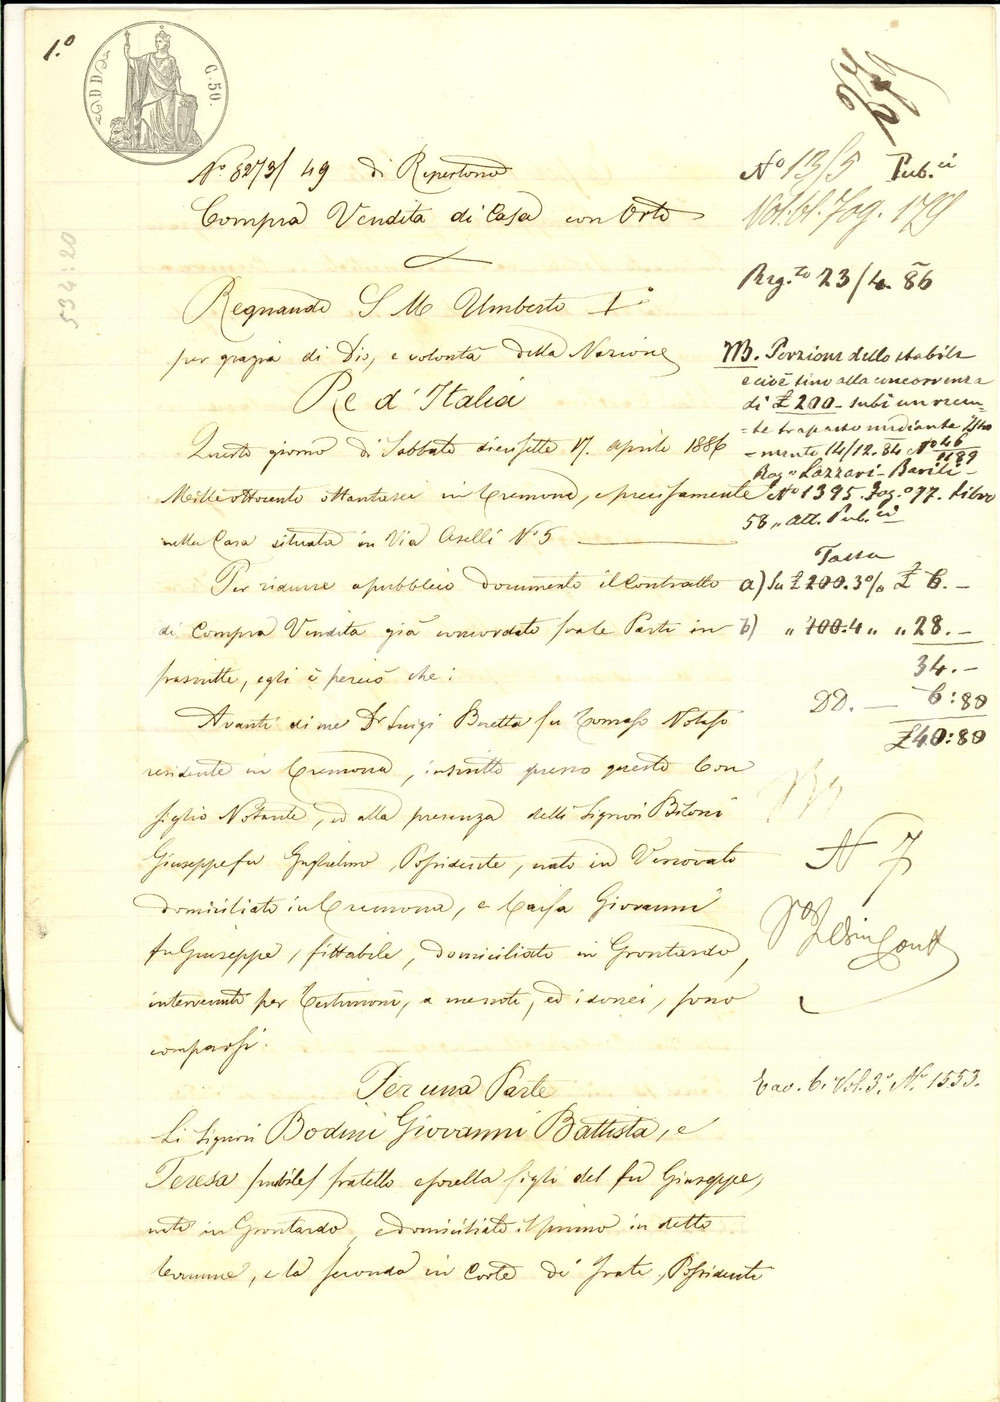 1.º
C. 50.
Nº 8273/49 di Repertorio
Compra Vendita di Casa con Orto
Regnando S M Umberto Iº
per grazia di Dio, e volontà della Nazione
Re d'Italia
Questo giorno di Sabbato diecisette 17. aprile 1886
Mille ottocento ottantasei in Cremona, e precisamente
nella Casa situata in Via Aselli Nº 5
Per ridurre a pubblico documento il Contratto
di Compra Vendita già concordato fra le Parti in
frascritte, egli è perciò che:
Avanti di me Dr Luigi Beretta fu Tomaso Notajo
residente in Cremona, inscritto presso questo Con
siglio Notarile, ed alla presenza delli Signori Biloni
Giuseppe fu Guglielmo, Possidente, nato in Verovato
domiciliato in Cremona, e Caifa Giovanni
fu Giuseppe, fittabile, domiciliato in Grontardo,
intervenuti per Testimoni, a me noti, ed idonei, sono
comparsi.
Per una Parte
Li Signori Bodini Giovanni Battista, e
Teresa /nubile/ fratello e sorella figli del fu Giuseppe,
nati in Grontardo, e domiciliato il primo in detto
Comune, e la seconda in Corte de' Frati, Possidenti
Nº 1315 Pub.ci
Vol. 61. Fog. 179
Reg.to 23/4 86
NB. Porzione dello stabile
e cioè sino alla concorrenza
di £ 200 - subì un recen-
-te trapasso mediante Istro
-mento 14/12. 84 Nº 46
1189
Rog.o Lazzari-Barili -
Nº 1395. Fog.o 77. Libro
58 „ att. Pub.ci
Tassa
a) Su £ 200. 3% £ 6. -
b) „ 700. 4 „ „ 28. -
34. -
DD. — 6:80
£ 40:80
N 7
Tav. 6. Vol. 3.º Nº 1553.
534:20